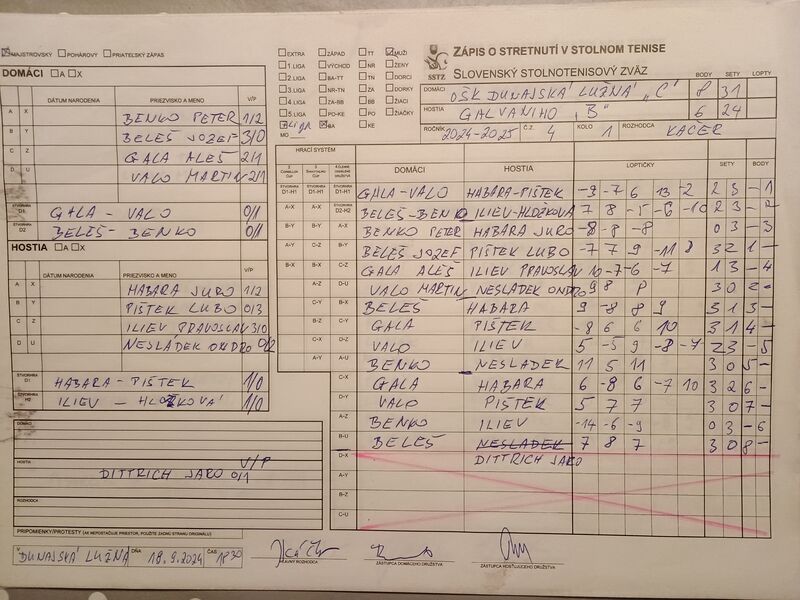 MAJSTROVSKÝ POHÁROVÝ PRIATEĽSKÝ ZÁPAS
DOMÁCI A X
DÁTUM NARODENIA PRIEZVISKO A MENO V/P
A X BENKO PETER 1/2
B Y BELEŠ JOZEF 3/0
C Z GALA ALEŠ 2/1
D U VALO MARTIN 2/1
ŠTVORHRA D1 GALA - VALO 0/1
ŠTVORHRA D2 BELEŠ - BENKO 0/1
HOSTIA A X
DÁTUM NARODENIA PRIEZVISKO A MENO V/P
A X HABARA JURO 1/2
B Y PIŠTEK LUBO 0/3
C Z ILIEV PRAVOSLAV 3/0
D U NESLADEK ONDRO 0/2
ŠTVORHRA H1 HABARA - PIŠTEK 1/0
ŠTVORHRA H2 ILIEV - HLOŽKOVÁ 1/0
DOMÁCI
HOSTIA V/P
DITTRICH JAKO 0/1
ROZHODCA
PRIPOMIENKY/PROTESTY (AK NEPOSTAČUJE PRIESTOR, POUŽITE ZADNÚ STRANU ORIGINÁLU)
V DUNAJSKÁ LUŽNÁ DŇA 18.9.2024 ČAS 18 30
EXTRA ZÁPAD TT MUŽI
1.LIGA VÝCHOD NR ŽENY
2.LIGA BA-TT TN DORCI
3.LIGA NR-TN ZA DORKY
4.LIGA ZA-BB BB ŽIACI
5.LIGA PO-KE PO ŽIAČKY
BA KE
MO
SSTZ
ZÁPIS O STRETNUTÍ V STOLNOM TENISE
SLOVENSKÝ STOLNOTENISOVÝ ZVÄZ
BODY SETY LOPTY
DOMÁCI OŠK DUNAJSKÁ LUŽNÁ „C“ 8 31
HOSTIA GALVANIHO „B“ 6 24
ROČNÍK 2024-2025 Č.Z. 4 KOLO 1 ROZHODCA KAČER
HRACÍ SYSTÉM
DOMÁCI HOSTIA LOPTIČKY SETY BODY
GALA-VALO HABARA-PIŠTEK -9 -7 6 13 -2 2 3 - 1
BELEŠ-BENKO ILIEV-HLOŽKOVA 7 8 -5 -6 -10 2 3 - 2
BENKO PETER HABARA JURO -8 -8 -8 0 3 - 3
BELEŠ JOZEF PIŠTEK LUBO -7 7 9 -11 8 3 2 1 -
GALA ALEŠ ILIEV PRAVOSLAV 10 -7 -6 -7 1 3 - 4
VALO MARTIN NESLADEK ONDRO 9 8 8 3 0 2 -
BELEŠ HABARA 9 -8 8 9 3 1 3 -
GALA PIŠTEK -8 6 6 10 3 1 4 -
VALO ILIEV 5 -5 9 -8 -7 2 3 - 5
BENKO NESLADEK 11 5 11 3 0 5 -
GALA HABARA 6 -8 6 -7 10 3 2 6 -
VALO PIŠTEK 5 7 7 3 0 7 -
BENKO ILIEV -14 -6 -9 0 3 - 6
BELEŠ NESLADEK 7 8 7 3 0 8 -
DITTRICH JAKO
D-X
A-Y
B-Z
C-U
HLAVNÝ ROZHODCA ZÁSTUPCA DOMÁCEHO DRUŽSTVA ZÁSTUPCA HOSŤUJÚCEHO DRUŽSTVA